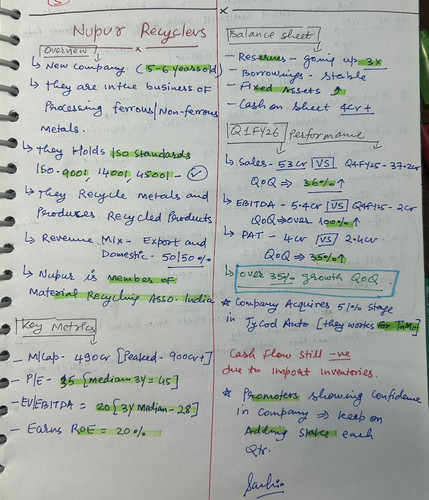 Nupur Recyclers
Overview
↳ New Company (5-6 years old)
↳ They are in the business of
Processing ferrous/Non-ferrous
metals.
↳ They Holds ISO Standards
ISO-9001, 14001, 45001 - ✓
↳ They Recycle metals and
Produces Recycled Products
↳ Revenue Mix - Export and
Domestic - 50/50%
↳ Nupur is member of
Material Recycling Asso. India
Key Metrics
- M/Cap - 490cr [Peaked - 900cr+]
- P/E - 35 [median 3Y = 45]
- EV/EBITDA = 20 [3Y Median - 28]
- Earns ROE = 20%
Balance sheet
- Reserves - going up 3x
- Borrowings - stable
- Fixed Assets ↑
- Cash on Sheet 4cr+
Q1FY26 Performance
↳ Sales - 53cr VS Q4FY25 - 37.2cr
QoQ ⇒ 36% ↑
↳ EBITDA - 5.4cr VS Q4FY25 - 2cr
QoQ ⇒ over 100% ↑
↳ PAT - 4cr VS 2.4cr
QoQ ⇒ 35% ↑
↳ over 35% growth QoQ
* Company Acquires 51% Stage
in Tycod Auto [they works for TaMo]
Cash Flow still -ve
due to Import Inventories.
* Promoters showing Confidence
in Company ⇒ keep on
Adding stake each
Qtr.